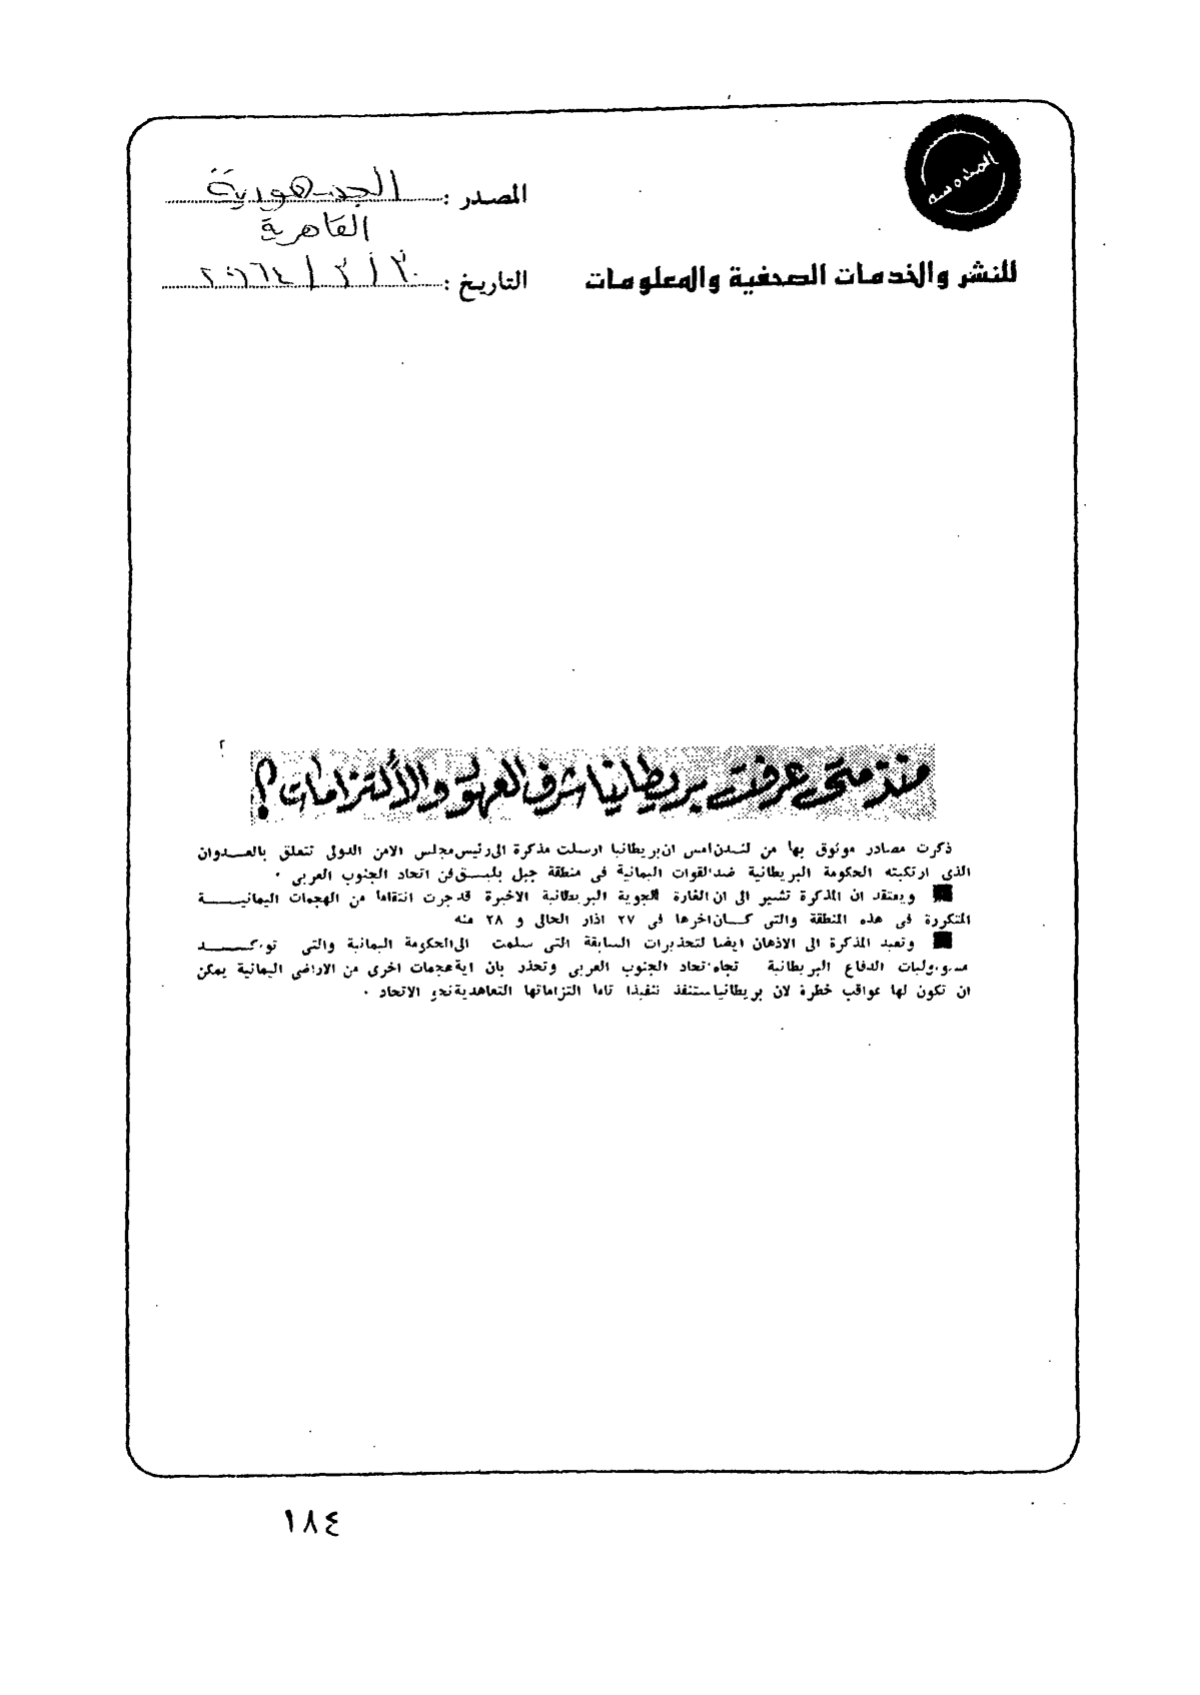 المصدر : الجمهورية
القاهرية
للنشر والخدمات الصحفية والمعلومات
التاريخ :
منذ متى عرفت بريطانيا شرف العهود والألتزامات ؟
ذكرت مصادر موثوق بها من لندن امس ان بريطانيا ارسلت مذكرة الى رئيس مجلس الامن الدولى تتعلق بالعدوان
الذى ارتكبته الحكومة البريطانية ضد القوات اليمانية فى منطقة جبل بلبق فى اتحاد الجنوب العربى .
ويعتقد ان المذكرة تشير الى ان الغارة الجوية البريطانية الاخيرة قد جرت انتقاما من الهجمات اليمانية
المتكررة فى هذه المنطقة والتى كان اخرها فى ٢٧ اذار الحالى و ٢٨ منه
وتعيد المذكرة الى الاذهان ايضا لتحذيرات السابقة التى سلمت الى الحكومة اليمانية والتى توكد
مسووليات الدفاع البريطانية تجاه اتحاد الجنوب العربى وتحذر بان اية هجمات اخرى من الاراضى اليمانية يمكن
ان تكون لها عواقب خطرة لان بريطانيا ستنفذ تنفيذا تاما التزاماتها التعاهدية نحو الاتحاد .
١٨٤